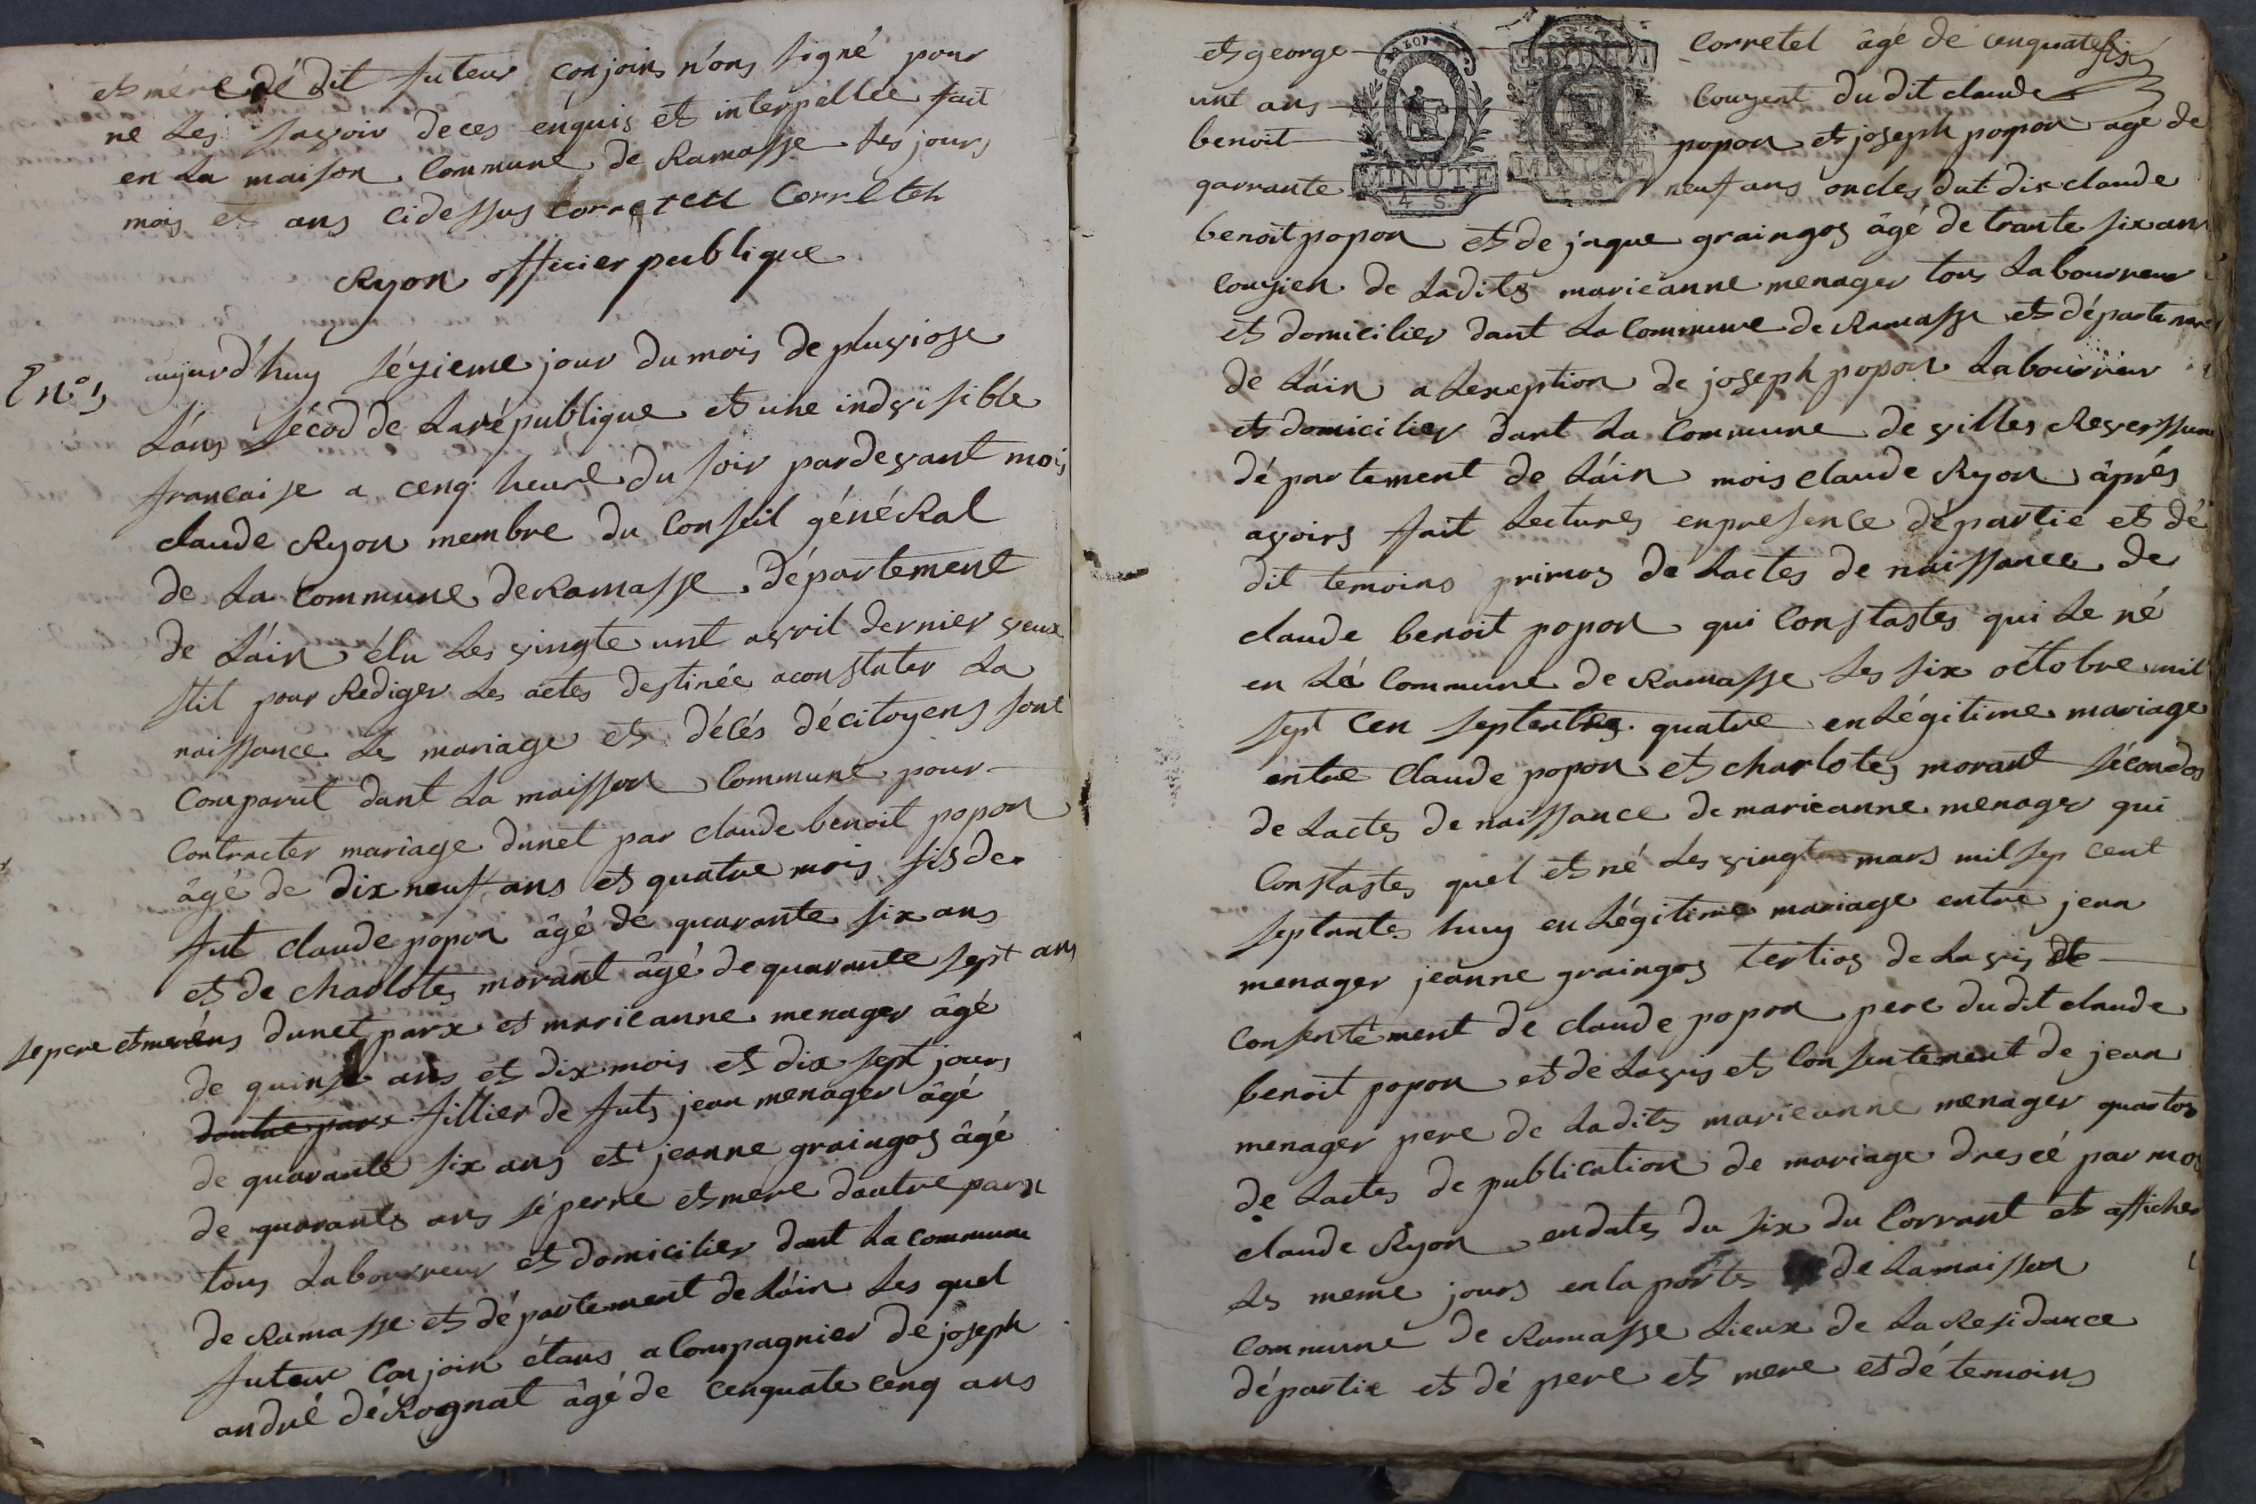 et mére dé dit futeur conjoins n'ons signé pour
ne les savoir deces enquis et interpellée fait
en la maison Commune de Ramasse les jours
mois et ans cidessus Corretell Corretell
Ryon officier publique
n° 5
aujourd'huy sézieme jour du mois de pluviose
láns sécod de la république et une indvisible
francaise a cenq heure du soir pardevant mois
claude Ryon membre du Conseil généRal
de la Commune de Ramasse département
de láin élu les vingte unt avril dernier veux
stil pour Rediger les actes destinée aconstater la
naissance le mariage et délés décitoyens sont
Comparut dant la maisson Commune pour
Contracter mariage dunet par claude benoit popon
âgé de dix neuf ans et quatre mois fis de
fut claude popon âgé de quarante six ans
et de charlotes morant âgé de quarante sept ans
se pere et meréns dunet parx et marieanne menager âgé
de quinse ans et dix mois et dix sept jours
doutre parx fillier de futs jean menager âgé
de quarante six ans et jeanne graingos âgé
de quarants ans sé perre et mere dautre parx
tous labourreur et domicilier dant la commune
de Ramasse et département de láin les quel
futeur Conjoin étans aCompagnier de joseph
andré déRognat âgé de cenquate cenq ans
et george Corretel âgé de cenquate six
unt ans Couzent du dit claude
benoit popon et joseph popon age de
qarrante neuf ans oncles dut dis claude
benoit popon et de jaque graingos âgé de trante six ans
Cousien de ladits marieanne menager tous labourreur
et domicilier dant la Commune de Ramasse et départemant
de láin a lexeption de joseph popon labourrieur
et domicilier dant la Commune de villes Reverssure
département de láin mois claude Ryon âprés
avoirs fait lectures enpresence départie et dé
dit temoins primos de lactes de naissance de
claude benoit popon qui Constastes qui le né
en lá Commune de Ramasse les six octobre mil
sept Cen septentes quatre en légitime mariage
entre Claude popon et charlotes morant sécondos
de lactes de naissance de marieanne menager qui
Constastes quel et né les vingt mars mil sep cent
septantes huy en légitime mariage entre jean
menager jeanne graingos tertios de lavis et
Consentement de claude popon pere du dit claude
benoit popon et de lavis et Consentement de jean
menager pere de ladits marieanne menager quartos
de lactes de publication de mariage dresée par mois
claude Ryon endates du six du Corrant et afficher
les meme jours en la portes de lamaisson
Commune de Ramasse lieux de la Residance
départie et dé pere et mere et dé temoins
MINUTE
4 S
MINUTE
4 S